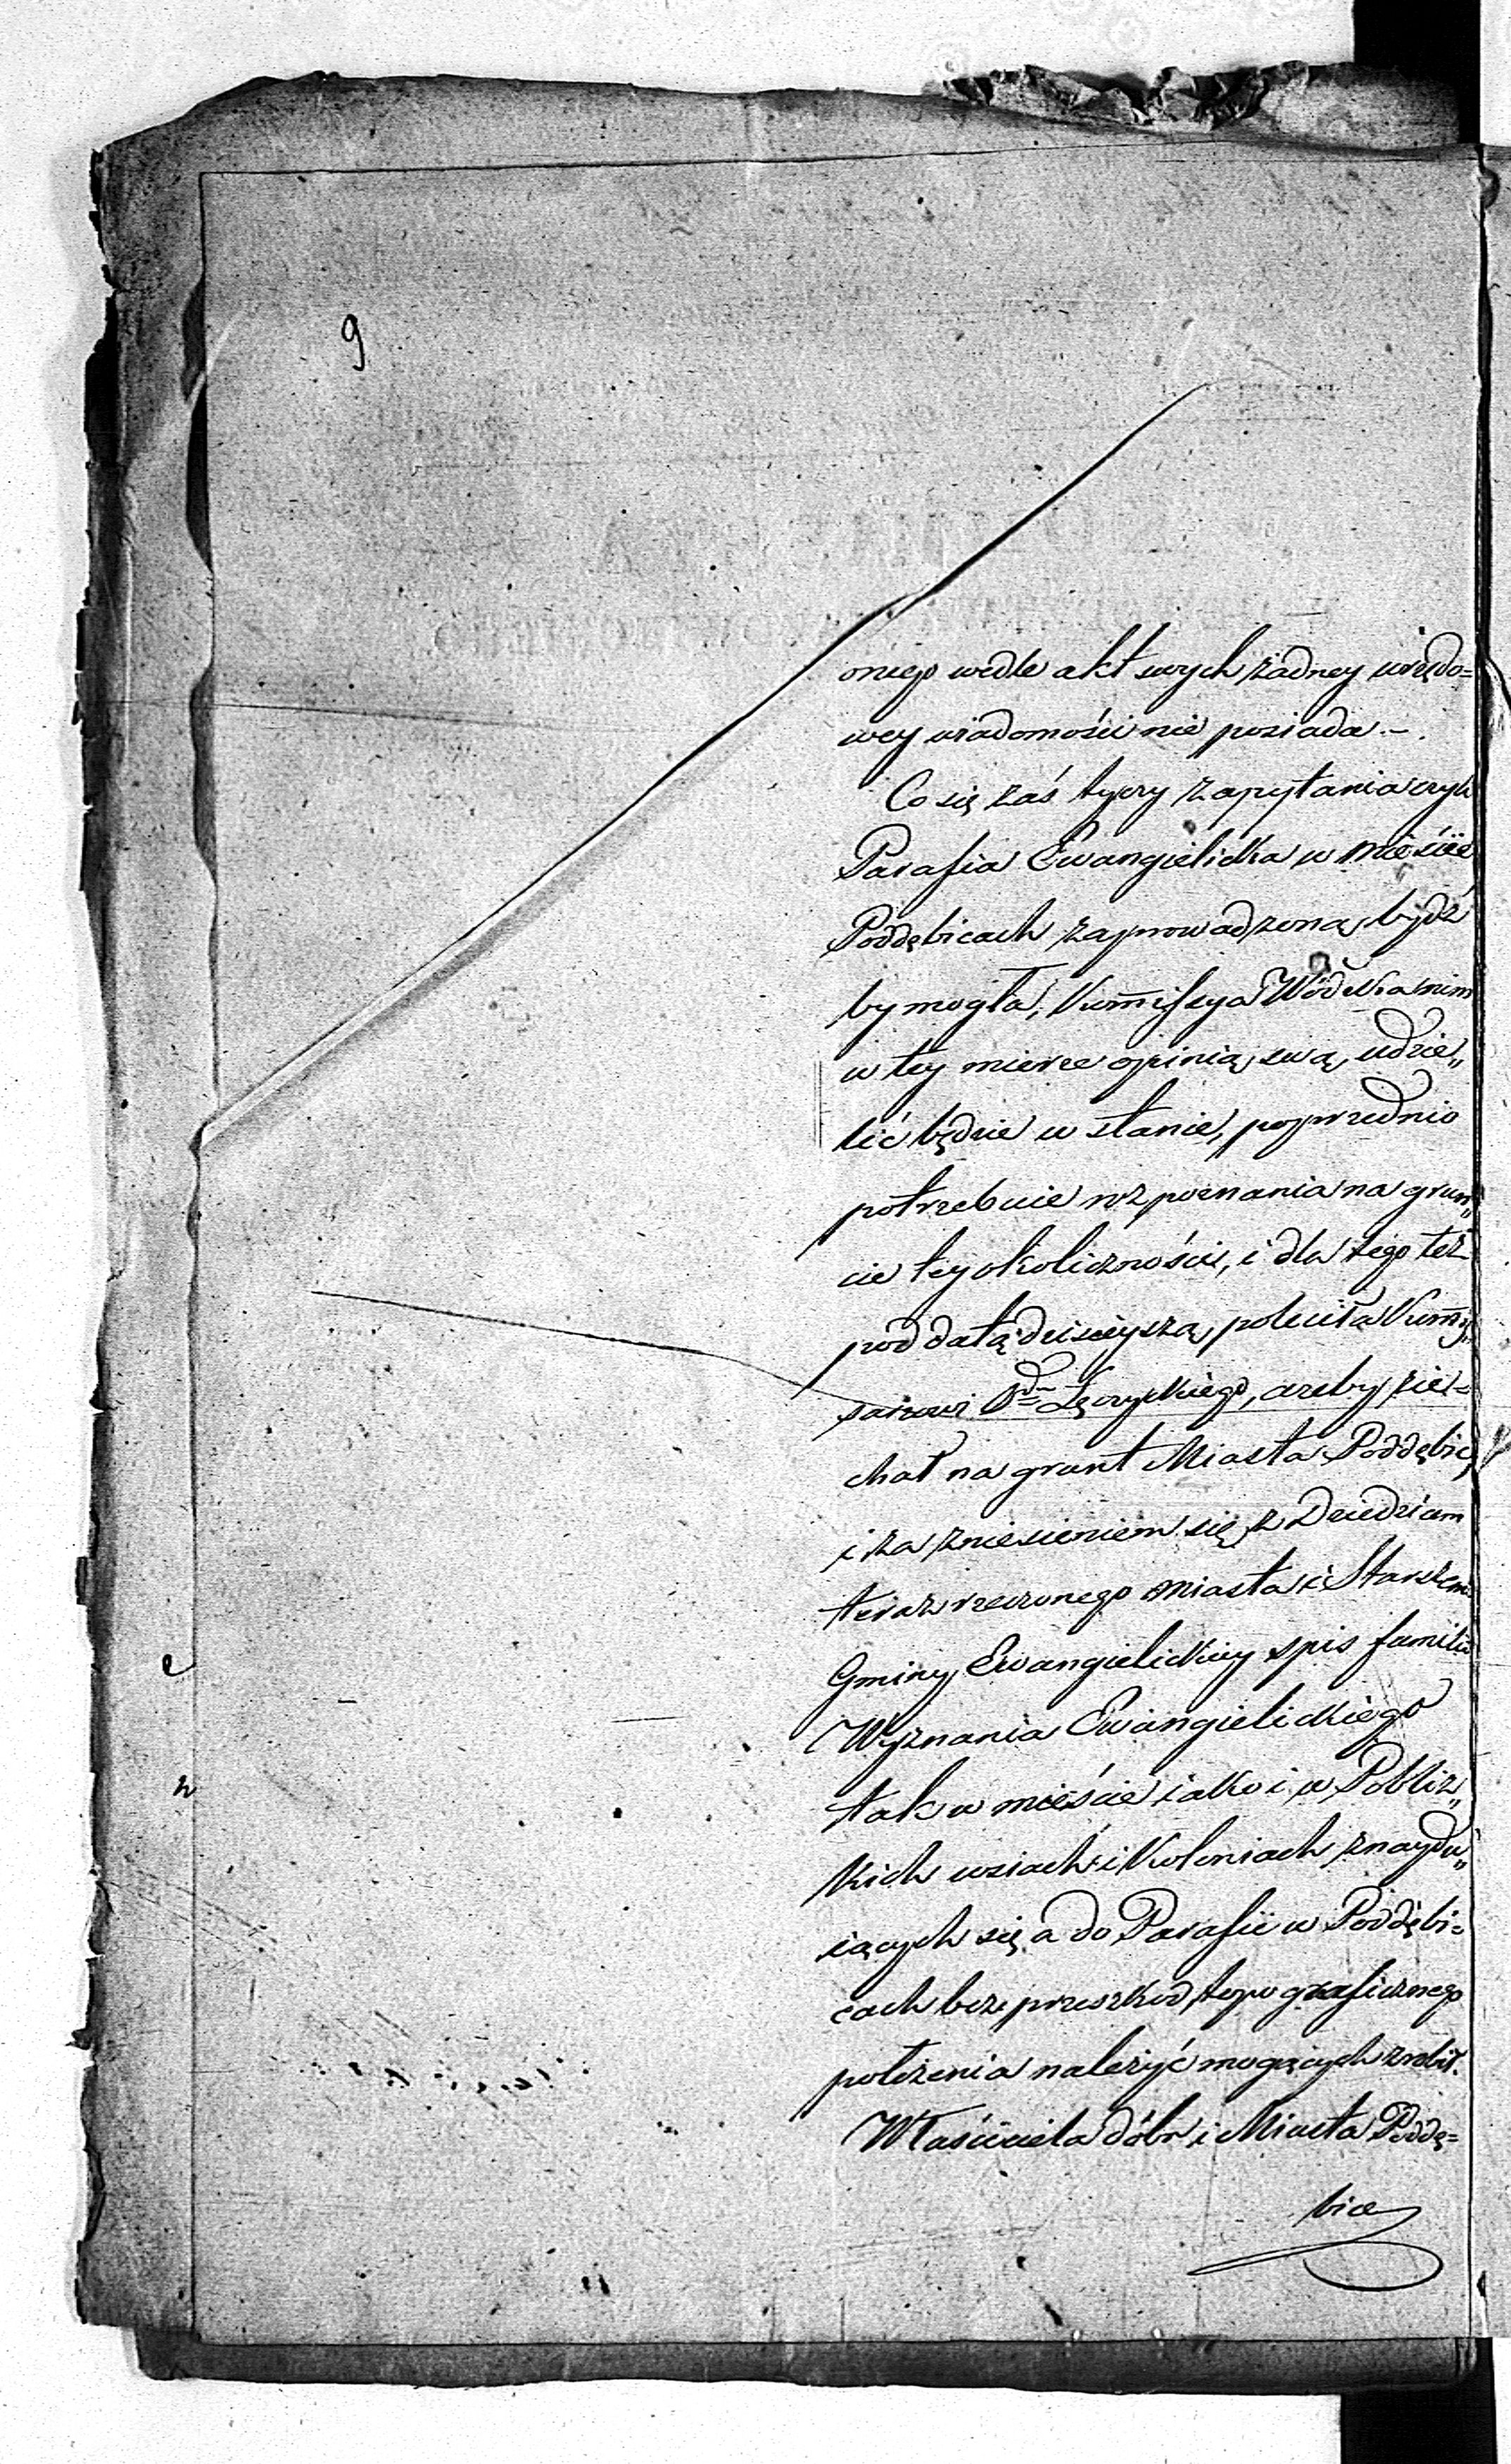 9
oniego wedle akt swych żadney urzędo=
wey wiadomości nie posiada. –
Co się zaś tyczy zapytania czyli
Parafia Ewangielicka w mieście
Poddębicach zaprowadzoną bydź
by mogła, Kommissya Wódzka nim
w tey mierze opinią swą udzie„
lić będzie w stanie, poprzednio
potrzebuie rozpoznania na grun„
cie tey okoliczności, i dla tego też
pod datą dzisieyszą poleciła Kommis„
sarzowi Łęczyckiego, ażeby zie=
chał na grunt Miasta Poddębic,
i za zniesieniem się z Dziedzicem
teraz rzeczonego miasta i Starszemi
Gminy Ewangielickiey spis familii
Wyznania Ewangielickiego
tak w mieście iako i w Pobliz„
kich wsiach i Koloniach znaydu„
iących się a do Parafii w Poddębi=
cach bez przeszkod topograficznego
położenia należyć mogących zrobił.
Właściciela dóbr i Miasta Poddę=
bice